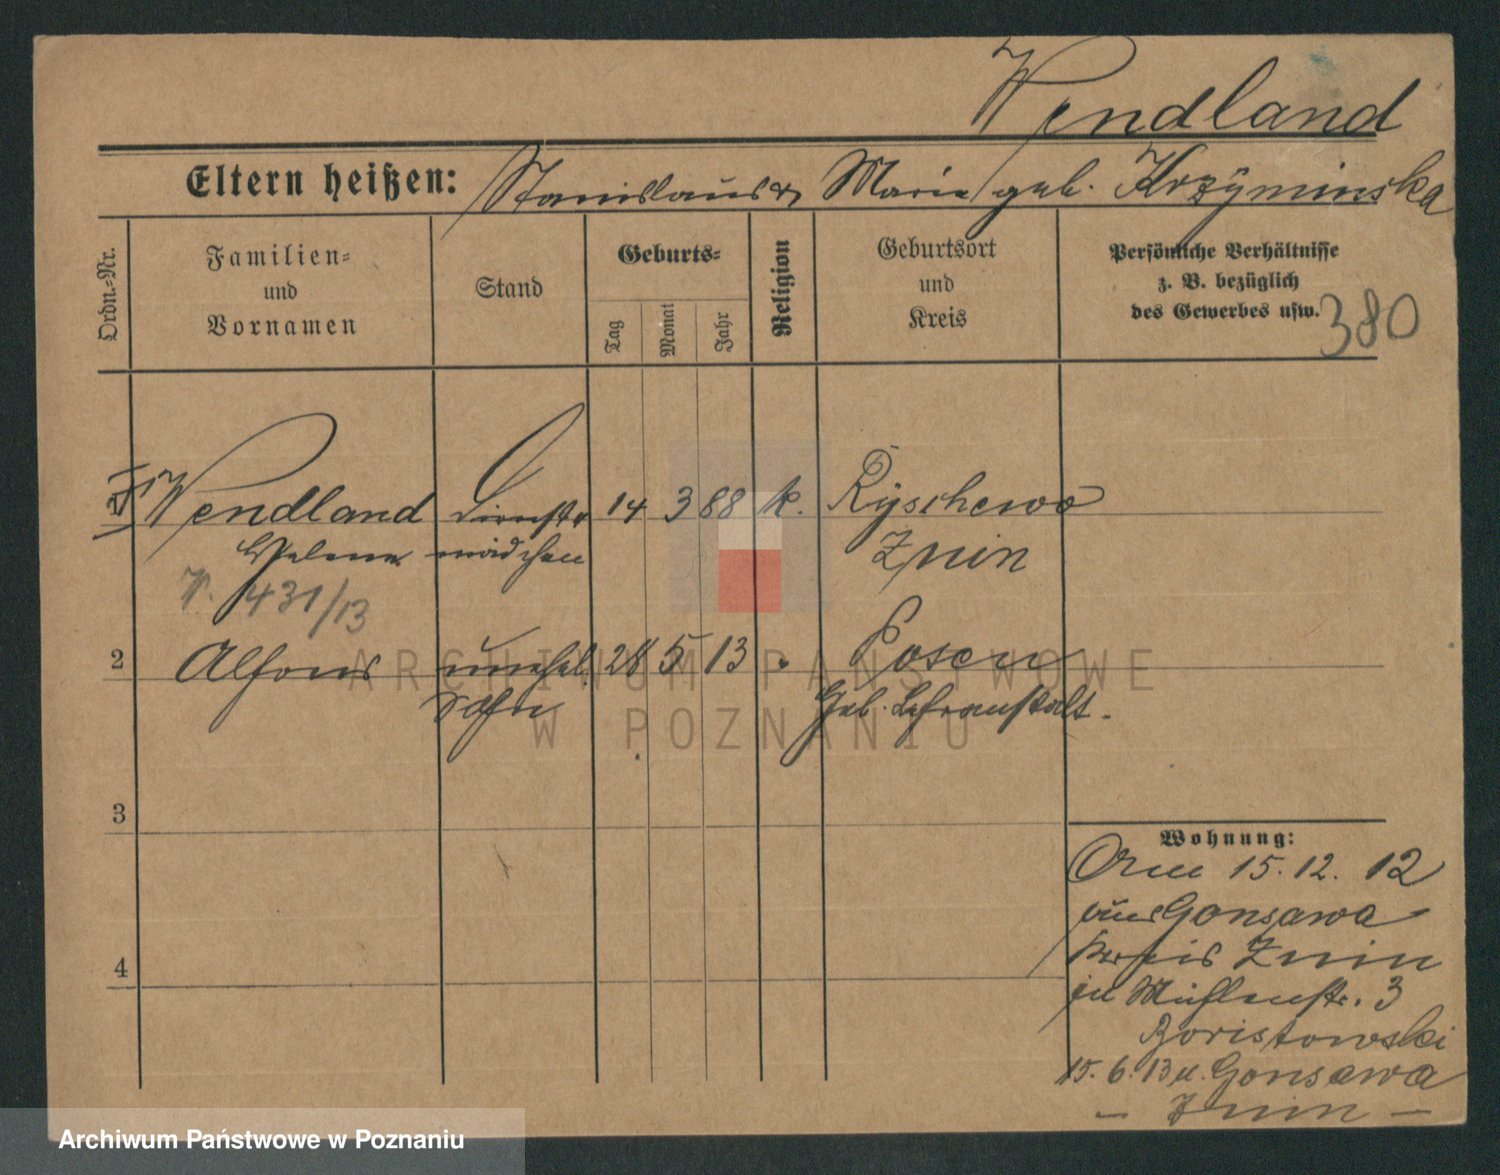 Wendland
Eltern heißen: Stanislaus & Marie geb. Krzyminska
Ordn.-Nr.
Familien-
und
Vornamen
Stand
Geburts-
Tag
Monat
Jahr
Religion
Geburtsort
und
Kreis
Persönliche Verhältnisse
z. B. bezüglich
des Gewerbes usw.
380
Wendland Dienst- 14 3 88 k. Ryschewo
mädchen Znin
W. 431/13
2 Alfons unehel. 28 5 13 " Posen
Sohn Geb. Lehranstalt.
3
Wohnung:
Am 15.12.12
aus Gonsawa
Kreis Znin
in Mühlenstr. 3
Boristowski
15.6.13 n. Gonsawa
- Znin -
4
ARCHIWUM PAŃSTWOWE
W POZNANIU
Archiwum Państwowe w Poznaniu